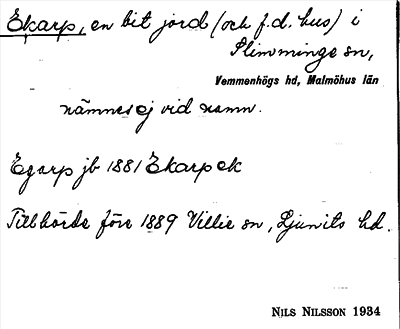 Ekarp, en bit jord (och f.d. hus) i
Slimminge sn,
Vemmenhögs hd, Malmöhus län
nämnes ej vid namn.
Egarp jb 1881 Ekarp ek
Tillhörde före 1889 Villie sn, Ljunits hd.
NILS NILSSON 1934